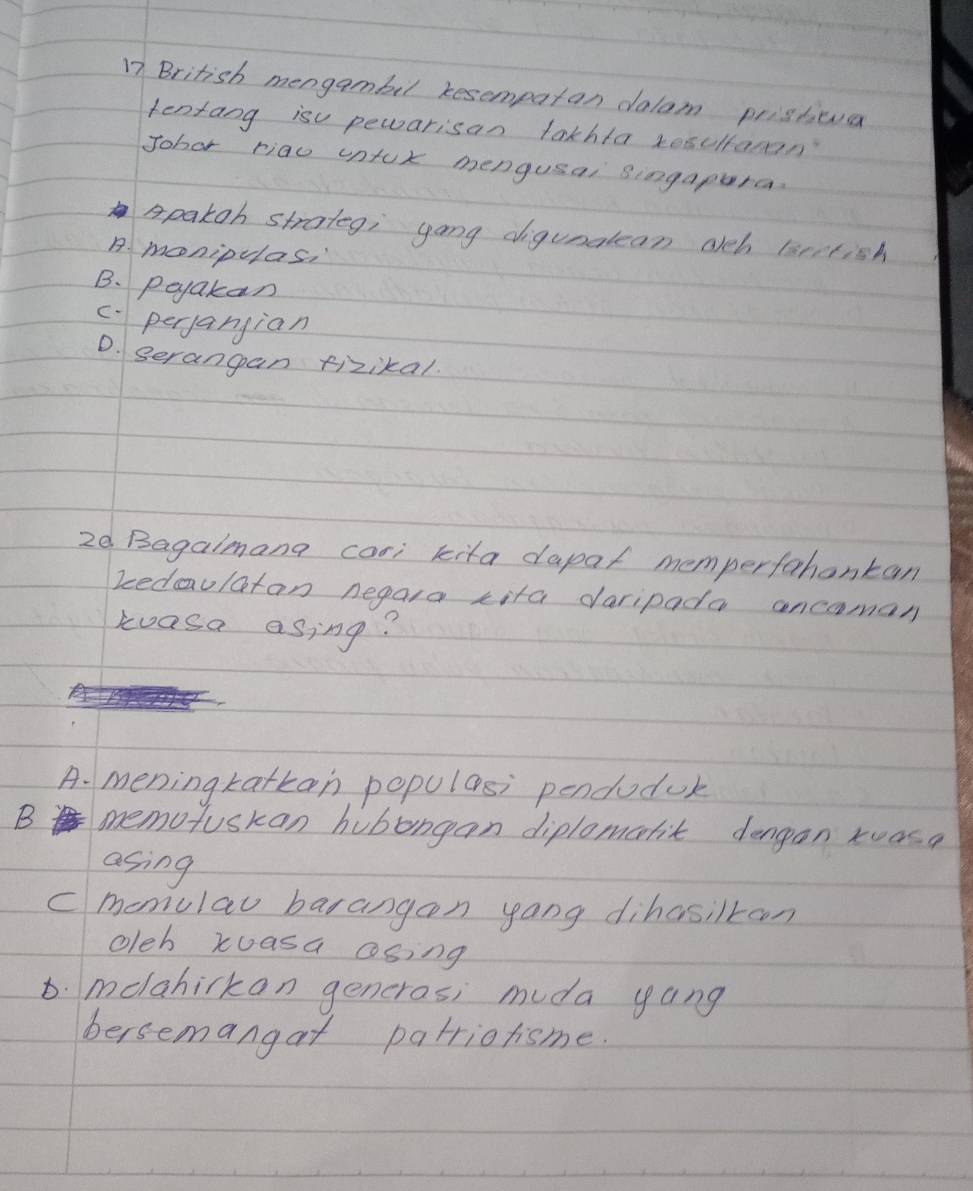 17 British mengambil kesempatan dalam pristiewa
tentang isu pewarisan takhta kesultanan
Johor riau untuk mengusai singapura.
Apakah strategi yang digunakan oleh British
A. manipulasi
B. pajakan
C. perjanjian
D. serangan fizikal.
20 Bagaimana cari kita dapat mempertahankan
kedaulatan negara kita daripada ancaman
kuasa asing?
A. meningkatkan populasi penduduk
B memutuskan hubungan diplomatik dengan kuasa
asing
C memulau barangan yang dihasilkan
oleh kuasa asing
D. melahirkan generasi muda yang
bersemangat patriotisme.